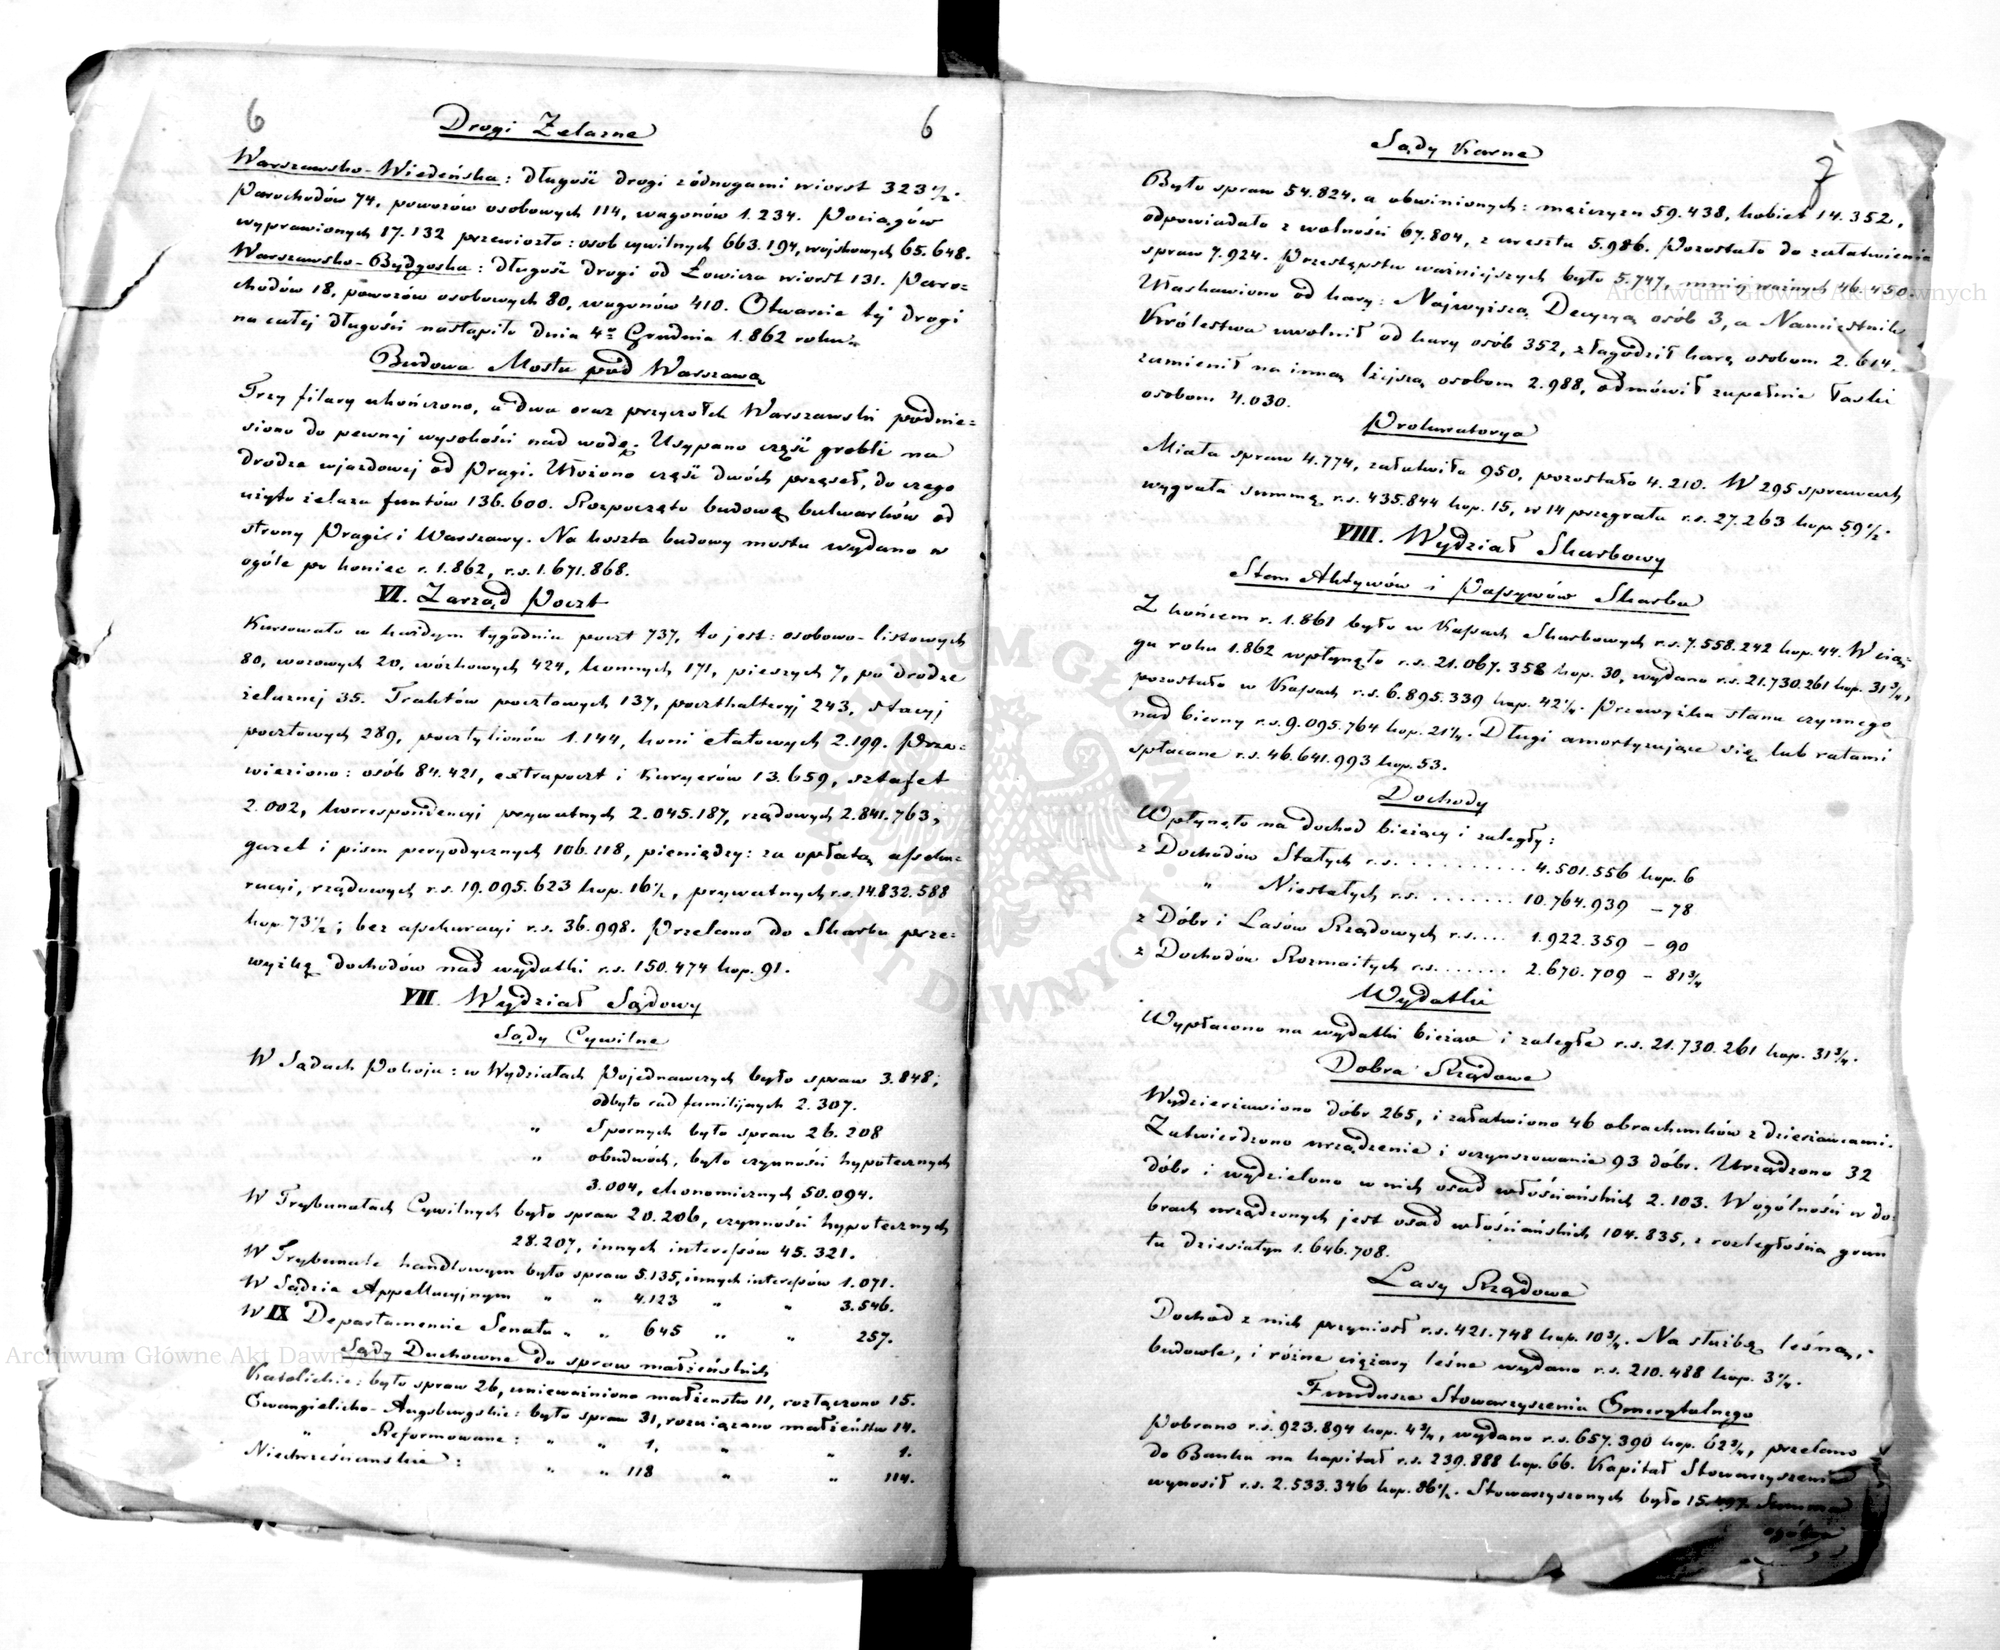 6
6
Drogi Żelazne
Warszawsko-Wiedeńska: długość drogi z ódnogami wiorst 323 1/2.
Parochodów 74, powozów osobowych 114, wagonów 1.234. Pociągów
wyprawionych 17.132 przewiozło: osób cywilnych 663.194, wojskowych 65.648.
Warszawsko-Bydgoska: długość drogi od Łowicza wiorst 131. Paro=
chodów 18, powozów osobowych 80, wagonów 410. Otwarcie tej drogi
na całej długości nastąpiło dnia 4º Grudnia 1.862 roku.
Budowa Mostu pod Warszawą
Trzy filary ukończono, a dwa oraz przyczołek Warszawski podnie=
siono do pewnej wysokości nad wodę. Usypano część grobli na
drodze wjazdowej od Pragi. Ułożono część dwóch przęseł, do czego
użyto żelaza funtów 136.600. Rozpoczęto budowę bulwarków od
strony Pragi i Warszawy. Na koszta budowy mostu wydano w
ogóle po koniec r. 1.862, r.s. 1.671.868.
VI. Zarząd Poczt
Kursowało w każdym tygodniu poczt 737, to jest: osobowo-listowych
80, wozowych 20, wózkowych 424, konnych 171, pieszych 7, po drodze
żelaznej 35. Traktów pocztowych 137, poczthalteryj 243, stacyj
pocztowych 289, pocztylionów 1.144, koni etatowych 2.199. Prze=
wieziono: osób 84.421, extrapoczt i Kuryerów 13.659, sztafet
2.002, korrespondencyj prywatnych 2.045.187, rządowych 2.841.763,
gazet i pism peryodycznych 106.118, pieniędzy: za opłatą asseku=
racyi, rządowych r.s. 19.095.623 kop. 16 1/2, prywatnych r.s. 14.832.588
kop. 73 1/2; bez assekuracyi r.s. 36.998. Przelano do Skarbu prze=
wyżkę dochodów nad wydatki r.s. 150.474 kop. 91.
VII. Wydział Sądowy
Sądy Cywilne
W Sądach Pokoju: w Wydziałach Pojednawczych było spraw 3.848;
odbyło rad familijnych 2.307.
" Spornych było spraw 26.208
" obudwóch, było czynności hypotecznych
3.004, ekonomicznych 50.094.
W Trybunałach Cywilnych było spraw 20.206, czynności hypotecznych
28.207, innych interessów 45.321.
W Trybunale handlowym było spraw 5.135, innych interessów 1.071.
W Sądzie Appellacyjnym " " 4.123 " " 3.546.
W IX Departamencie Senatu " " 645 " " 257.
Sądy Duchowne do spraw małżeńskich
Katolickie: było spraw 26, unieważniono małżeństw 11, rozłączono 15.
Ewangielicko-Augsburgskie: było spraw 31, rozwiązano małżeństw 14.
" Reformowane: " " 1, " " 1.
Niechrześciańskie: " " 118 " " 114.
7
Sądy Karne
Było spraw 54.824, a obwinionych: mężczyzn 59.438, kobiet 14.352,
odpowiadało z wolności 67.804, z aresztu 5.986. Pozostało do załatwienia
spraw 7.924. Przestępstw ważniejszych było 5.747, mniej ważnych 46.450.
Ułaskawiono od kary: Najwyższą Decyzyą osób 3, a Namiestnik
Królestwa uwolnił od kary osób 352, złagodził karę osobom 2.614.
zamienił na inną lżejszą osobom 2.988, odmówił zupełnie łaski
osobom 4.030.
Prokuratorya
Miała spraw 4.774, załatwiła 950, pozostało 4.210. W 295 sprawach
wygrała summę r.s. 435.844 kop. 15, w 14 przegrała r.s. 27.263 kop. 59 1/2.
VIII. Wydział Skarbowy
Stan Aktywów i Passywów Skarbu
Z końcem r. 1.861 było w Kassach Skarbowych r.s. 7.558.242 kop. 44. W cią=
gu roku 1.862 wpłynęło r.s. 21.067.358 kop. 30, wydano r.s. 21.730.261 kop. 31 3/4,
pozostało w Kassach r.s. 6.895.339 kop. 42 1/4. Przewyżka stanu czynnego
nad bierny r.s. 9.095.764 kop. 21 1/4. Długi amortyzujące się lub ratami
spłacane r.s. 46.641.993 kop. 53.
Dochody
Wpłynęło na dochód bieżący i zaległy:
z Dochodów Stałych r.s. .......... 4.501.556 kop. 6
" Niestałych r.s. ........ 10.764.939 – 78
z Dóbr i Lasów Rządowych r.s. .... 1.922.359 – 90
z Dochodów Rozmaitych r.s. ....... 2.670.709 – 81 3/4
Wydatki
Wypłacono na wydatki bieżące i zaległe r.s. 21.730.261 kop. 31 3/4.
Dobra Rządowe
Wydzierżawiono dóbr 265, i załatwiono 46 obrachunków z dzierżawcami.
Zatwierdzono urządzenie i oczynszowanie 93 dóbr. Urządzono 32
dóbr i wydzielono w nich osad włościańskich 2.103. W ogólności w do=
brach urządzonych jest osad włościańskich 104.835, z rozległością grun
tu dziesiatyn 1.646.708.
Lasy Rządowe
Dochód z nich przyniósł r.s. 421.748 kop. 10 3/4. Na służbę leśną,
budowle, i różne ciężary leśne wydano r.s. 210.488 kop. 3 1/4.
Fundusze Stowarzyszenia Emerytalnego
Pobrano r.s. 923.894 kop. 4 3/4, wydano r.s. 657.390 kop. 62 3/4, przelano
do Banku na kapitał r.s. 239.888 kop. 66. Kapitał Stowarzyszenia
wynosił r.s. 2.533.346 kop. 86 1/2. Stowarzyszonych było 15.497. Summa
ogólna
Archiwum Główne Akt Dawnych
Archiwum Główne Akt Dawnych
ARCHIWUM GŁÓWNE AKT DAWNYCH